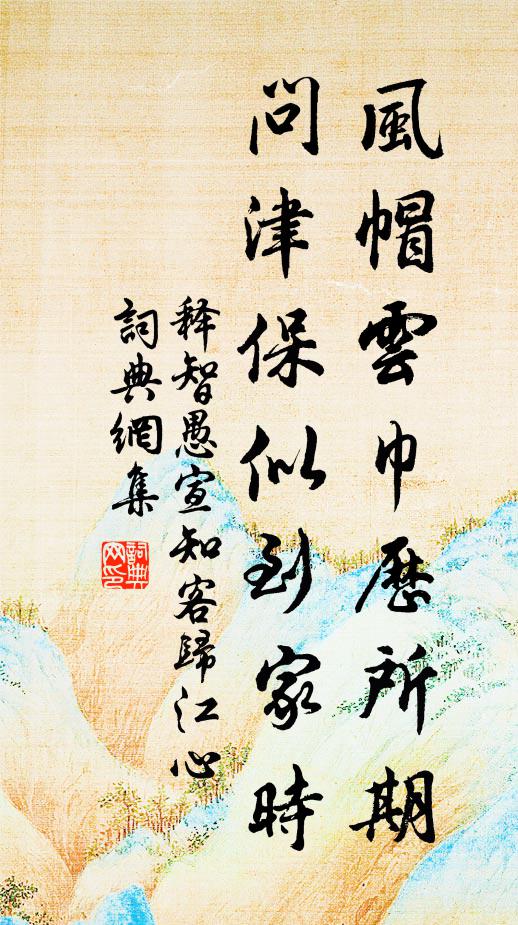 風帽雲巾歷所期
問津保似到家時
释智愚宣知客歸江心
詞典網集
詞典網印